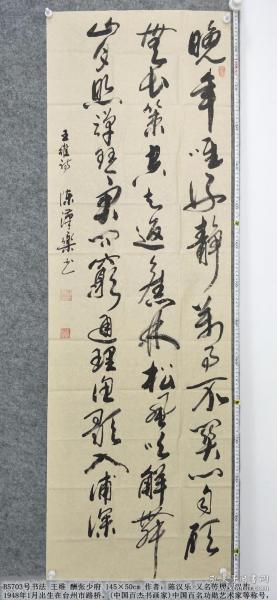 晚年唯好静萬事不関心自顧
無長策空知返舊林松風吹解帶
山月照彈琴君问窮通理漁歌入浦深
王维诗
陈漢樂书
B5703号书法 王维 酬张少府 145×50cm 作者：陈汉乐，又名
1948年1月出生在台州市路桥，(中国百杰书画家)中国百名功勋艺术家等称号，